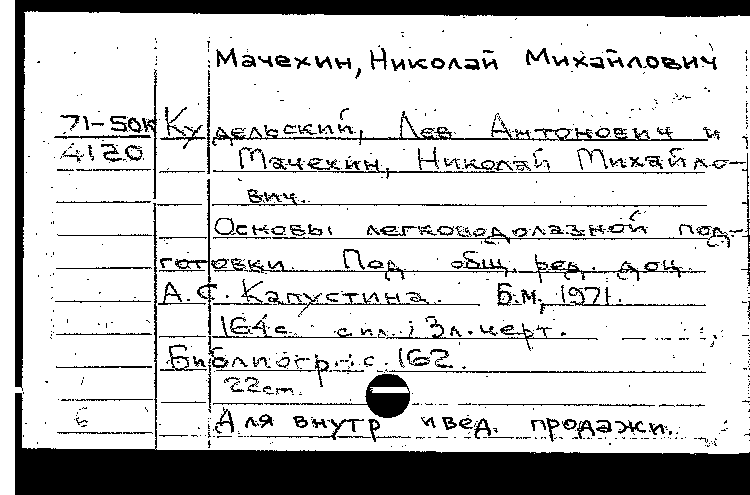 Мачехин, Николай Михайлович
71-50к Кудельский, Лев Антонович и
4120 Мачехин, Николай Михайло-
вич.
Основы легководолазной под-
готовки. Под общ. ред. доц.
А. С. Капустина. Б.м., 1971.
164 с. с ил.; 3 л. черт.
Библиогр.: с. 162.
22 cm.
6 Для внутр ивед. продажи.